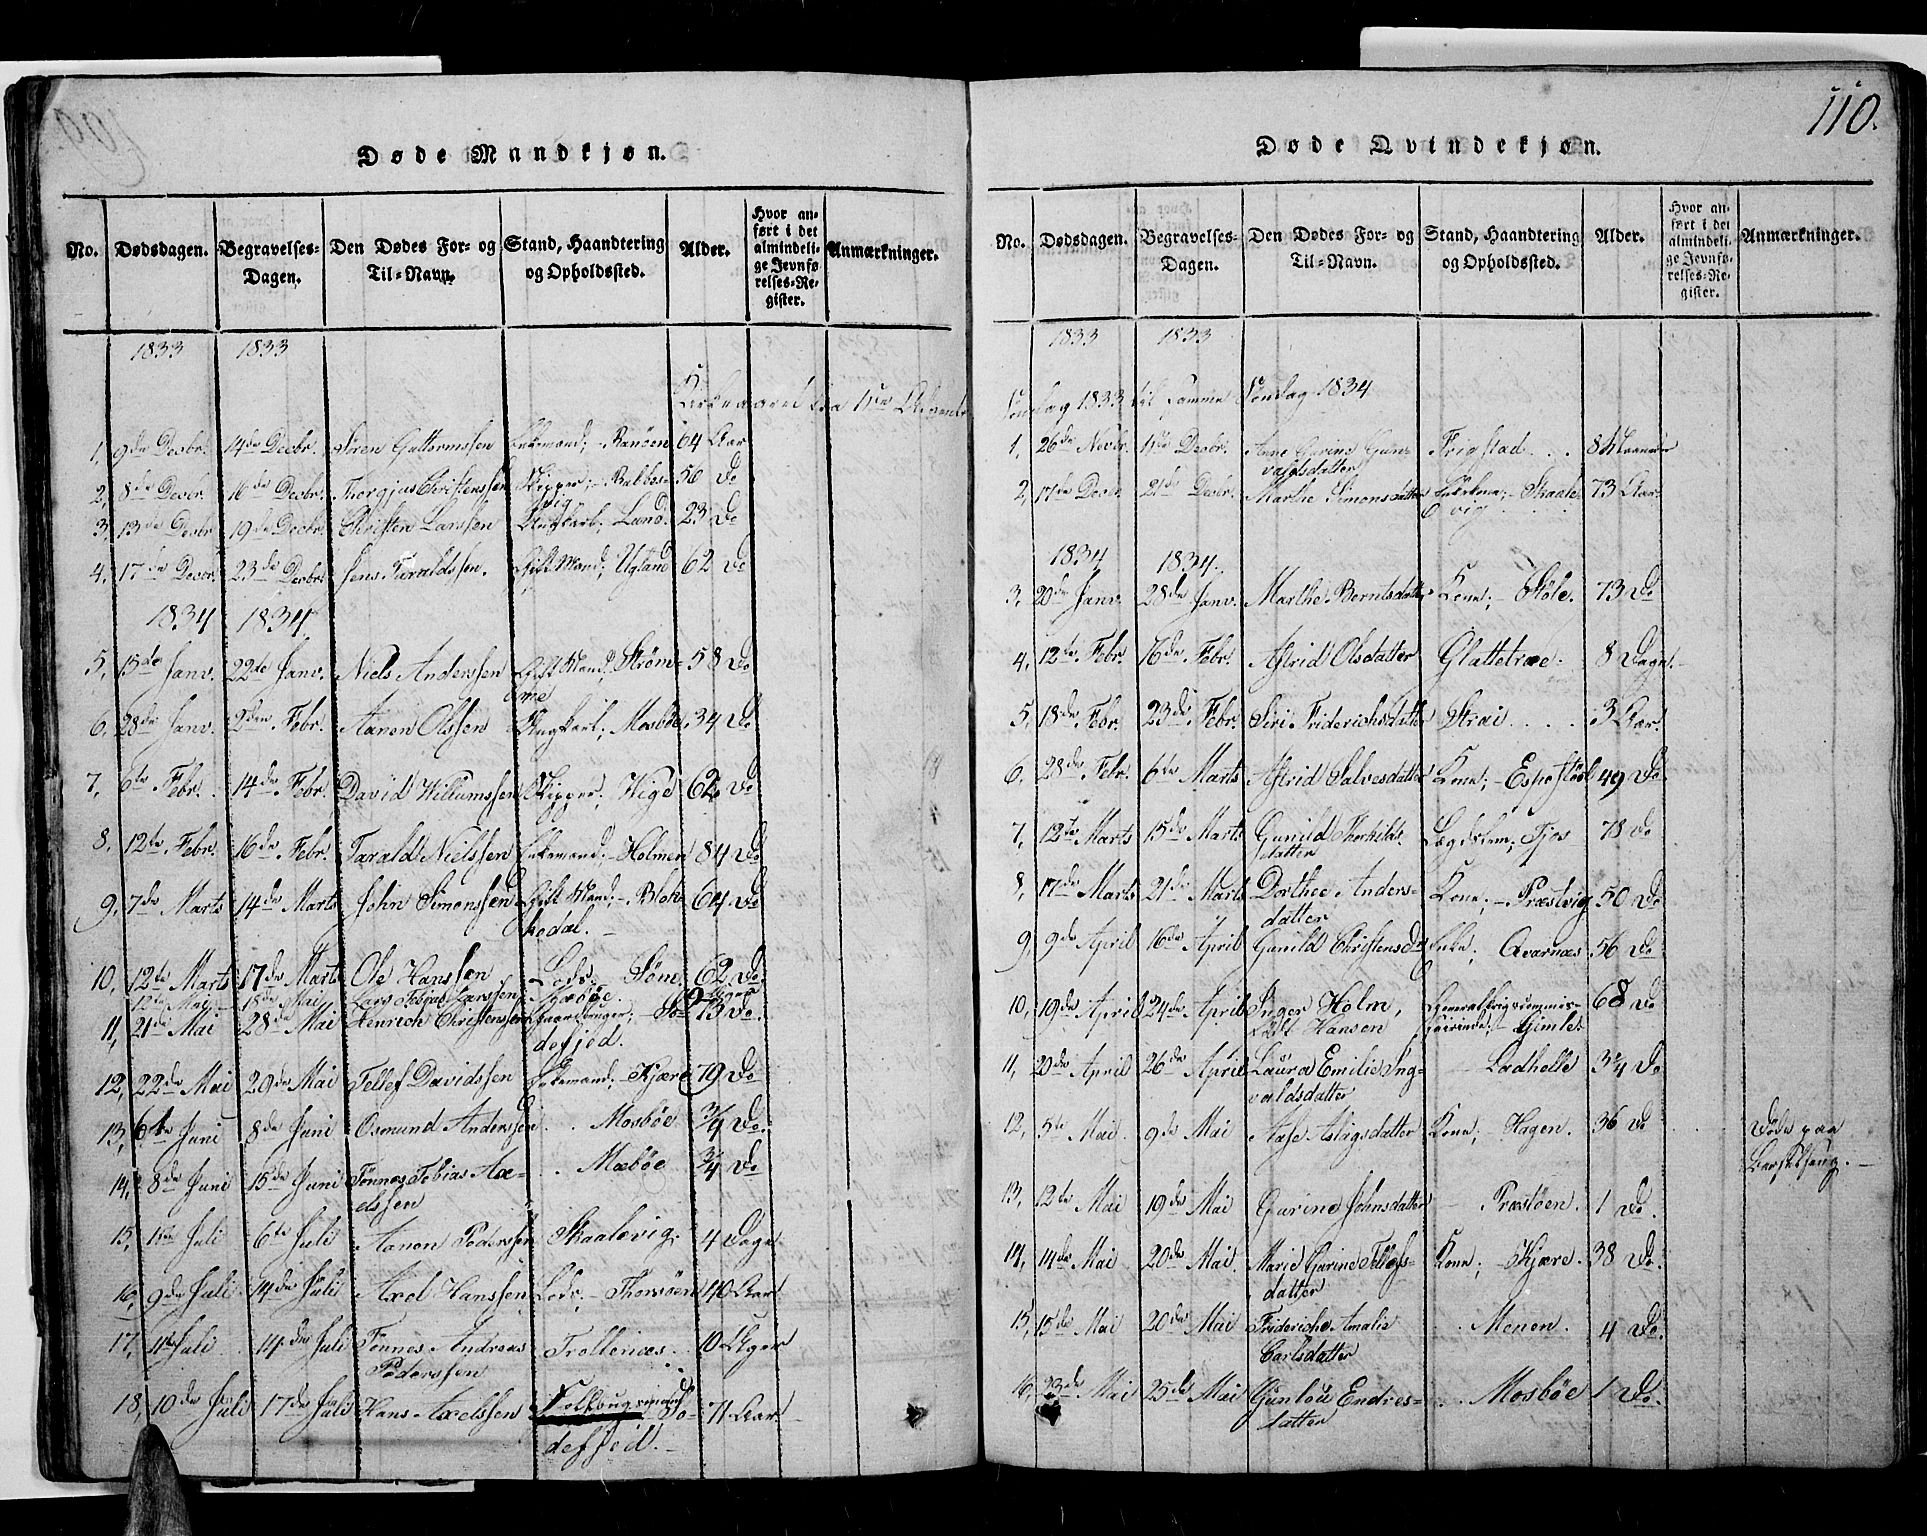 110.
Døde Mandkjøn.
No. Dødsdagen. Begravelses-Dagen. Den Dødes For- og Til-Navn. Stand, Haandtering og Opholdssted. Alder. Hvor anført i det almindelige Jevnførelses-Register. Anmærkninger.
1833 1833
Kirkeaaret fra 1ste Advents
1, 9de Decbr. 14de Decbr. Søren Guttormssen Enkemand; Ranøen 64 Aar
2, 8de Decbr. 16de Decbr. Thorgius Christenssen Skipper; Rabbes- 56 Do
vig
3, 13de Decbr. 19de Decbr. Christen Larssen Ungkarl; Lund. 23 Do
4, 17de Decbr. 23de Decbr. Jens Taraldssen. Gift Mand; Ugland 62 Do
1834 1834.
5, 15de Janv. 22de Janv. Niels Anderssen Gift Mand; Strøm- 58 Do
me
6, 28de Janv. 2den Febr. Aanon Olssen Ungkarl; Mosbøe, 34 Do
7, 6te Febr. 14de Febr. David Willumssen Skipper; Hige 62 Do
8, 12te Febr. 16de Febr. Tarald Nielssen Enkemand; Holmen 84 Do
9, 7de Marts 14de Marts John Simonssen Gift Mand; Blok- 64 Do
kedal.
10, 12te Marts 17de Marts Ole Hanssen Lods; Søm. 62 Do
12te Mai 18de Mai Lars Tobias Larssen;
11, 21de Mai 28de Mai Henrich Christenssen Gaardbruger; So- 73 Do.
defjed.
12, 22de Mai 29de Mai Tellef Davidssen Enkemand; Kjære 79 Do
13, 6te Juni 8de Juni Osmund Anderssen . . Mosbøe 3/4 Do
14, 8de Juni 15de Juni Tønnes Tobias Ax- . . Mæbøe 3/4 Do
elssen
15, 1ste Juli 6te Juli Aanon Pederssen Skaalevig. 4 Dage
16, 9de Juli 14de Juli Axel Hanssen Lods; Thorsøen 40 Aar
17, 11te Juli 14de Juli Tønnes Andreas Trollenæs. 10 Uger
Pederssen
18, 10de Juli 17de Juli Hans Axelssen So- 71 Aar
defjed.
Døde Qvindekjøn.
No. Dødsdagen. Begravelses-Dagen. Den Dødes For- og Til-Navn. Stand, Haandtering og Opholdssted. Alder. Hvor anført i det almindelige Jevnførelses-Register. Anmærkninger.
1833 1833
Søndag 1833 til samme Søndag 1834
1, 26de Novbr. 1ste Decbr. Anne Gurine Gun- Frigstad . . . 8 Maaneder
valdsdatter
2, 17de Decbr. 21de Decbr. Marthe Simonsdatter Enke; Skaale- 73 Aar.
vig
1834 1834.
3, 20de Janv. 28de Janv. Marthe Berntsdatter Kone; Støle. 73 Do
4, 12te Febr. 16de Febr. Astrid Olsdatter Glattetræe. 8 Dage.
5, 18de Febr. 23de Febr. Siri Friderichsdatter Strai . . . . 3 Aar.
6, 28de Febr. 6te Marts Astrid Salvesdatter Kone; 49 Do.
7, 12te Marts 15de Marts Gunild Therkilds- Lægdslem; Tjos 78 Do
datter
8, 17de Marts 21de Marts Dorthee Anders- Kone; Præstvig 50 Do
datter
9, 9de April 16de April Gunild Christensdr Enke; Qvarnæs 56 Do
10, 19de April 24de April Inger Holm, Generalkrigscommis- 68 Do
født Hansen sairinde; Gimle
11, 20de April 26de April Laura Emilie Ing- Ladhelle 3 3/4 Do
valdsdatter
12, 5te Mai. 9de Mai Aase Aslagsdatter Kone; Hagen. 36 Do Døde paa
Barselseng.
13, 12te Mai 19de Mai Gurine Johnsdatter Præstøen. 1 Do.
14, 14de Mai 20de Mai. Marie Gurine Tellefs- Kone; Kjære. 38 Do.
datter
15, 15de Mai 20de Mai Frideriche Amalie . . Menen. 4 Do.
Carlsdatter
16, 23de Mai 25de Mai Gunlou Endres- . . Mosbøe 1 Do.
datter